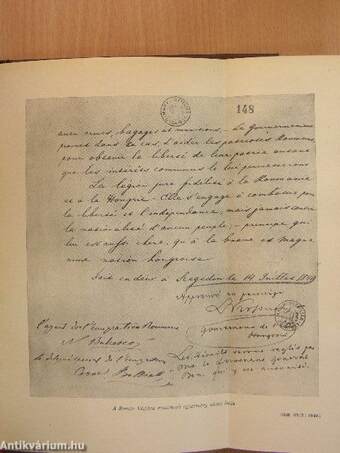 148
avec armes, bagages et munitions. Le Gouvernement
promet dans ce cas d'aider les patriotes Roumains
pour obtenir la liberté de leur patrie autant
que les intérêts communs le lui permettront
La légion jure fidélité à la Roumanie
et à la Hongrie. Elle s'engage à combattre pour
la liberté et l'indépendance, mais jamais contre
la nationalité d'aucun peuple, principe qui
lui est aussi chère, qu'à la brave et magna
nime nation hongroise.
Fait en deux à Szegedin le 14 Juillet 1849
Approuvé en principe
Gouverneur de
Hongrie
l'agent de l'émigration Roumaine
N. Balcesco
de l'émigration
Les détails seront réglés par
le general
A Román légióra vonatkozó egyezmény utolsó lapja.
Antikvárium.hu